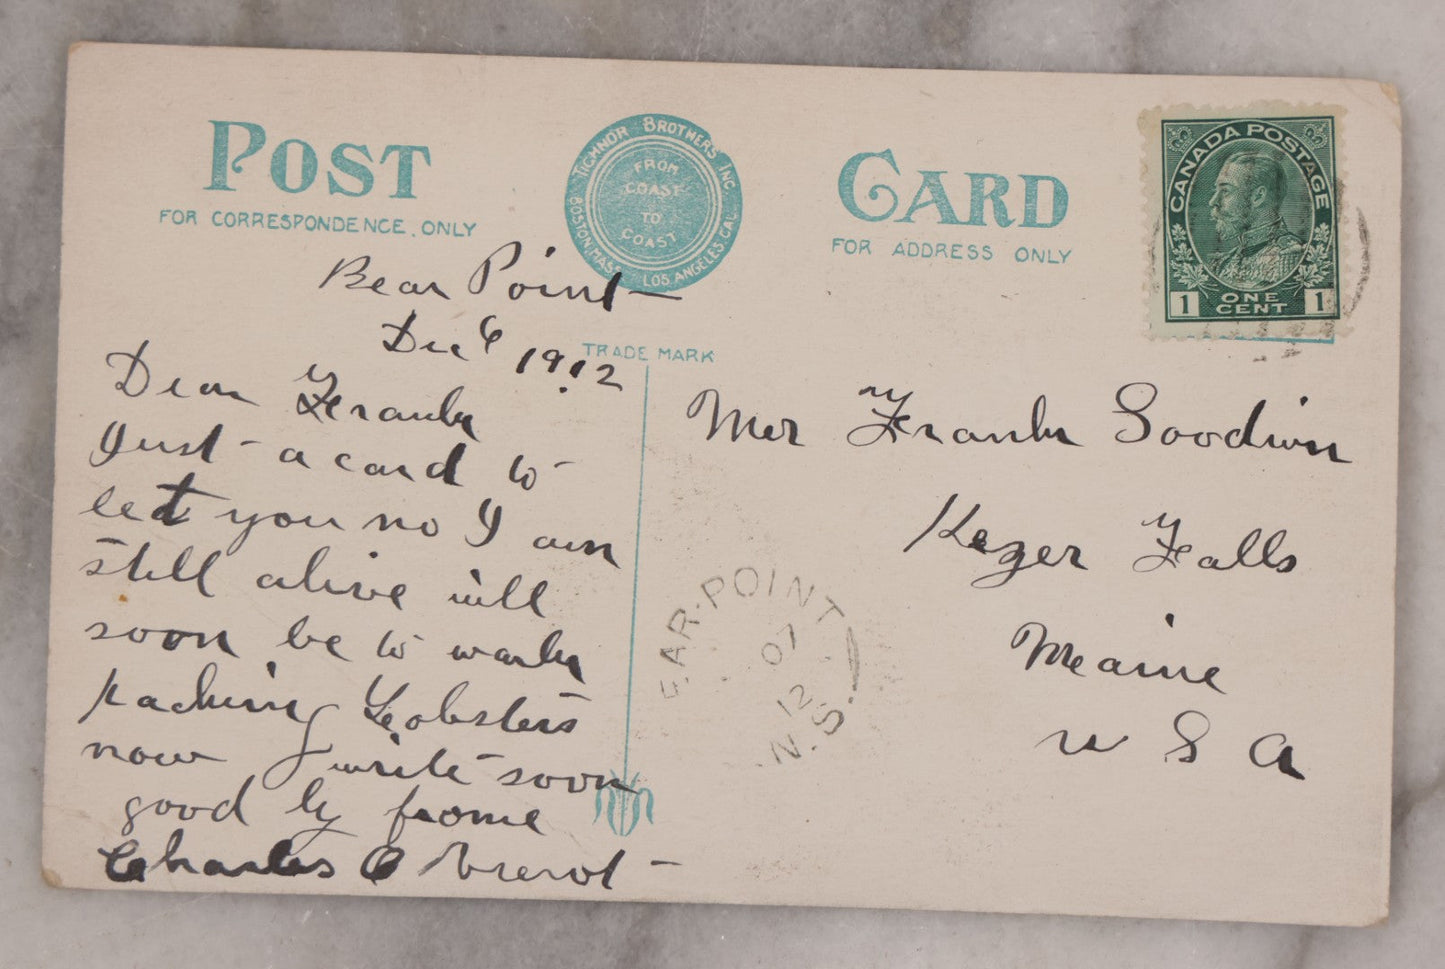 POST CARD
FOR CORRESPONDENCE, ONLY
FOR ADDRESS ONLY
TICHNOR BROTHERS INC.
BOSTON, MASS. LOS ANGELES, CAL.
FROM
COAST
TO
COAST
TRADE MARK
CANADA POSTAGE
1 ONE CENT 1
Bear Point
Dec 6 1912
Dear Frank
Just a card to
let you no I am
still alive will
soon be to work
packing Lobsters
now write soon
good by frome
Charles
Mr Frank Goodwin
Kezer Falls
Maine
U S A
EAR-POINT
07
12
N.S.